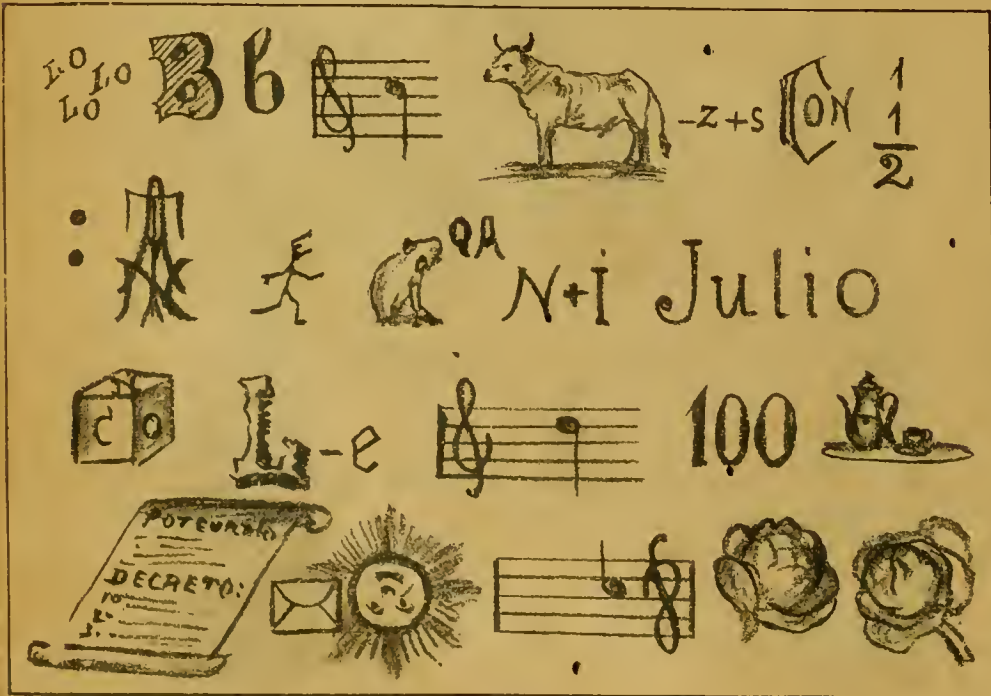 LO LO
LO
B b -z+s ON 1
1
2
QA
N+I Julio
C O L -e 100
DECRETO: